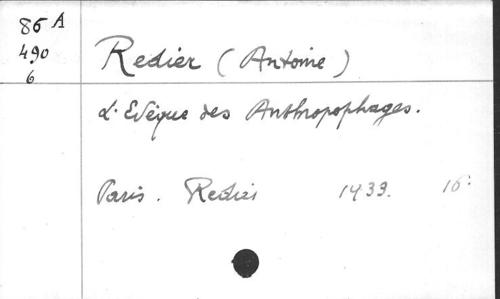 86 A
490
6
Redier (Antoine)
L'Evêque des Anthropophages.
Paris. Redier 1933. 16°